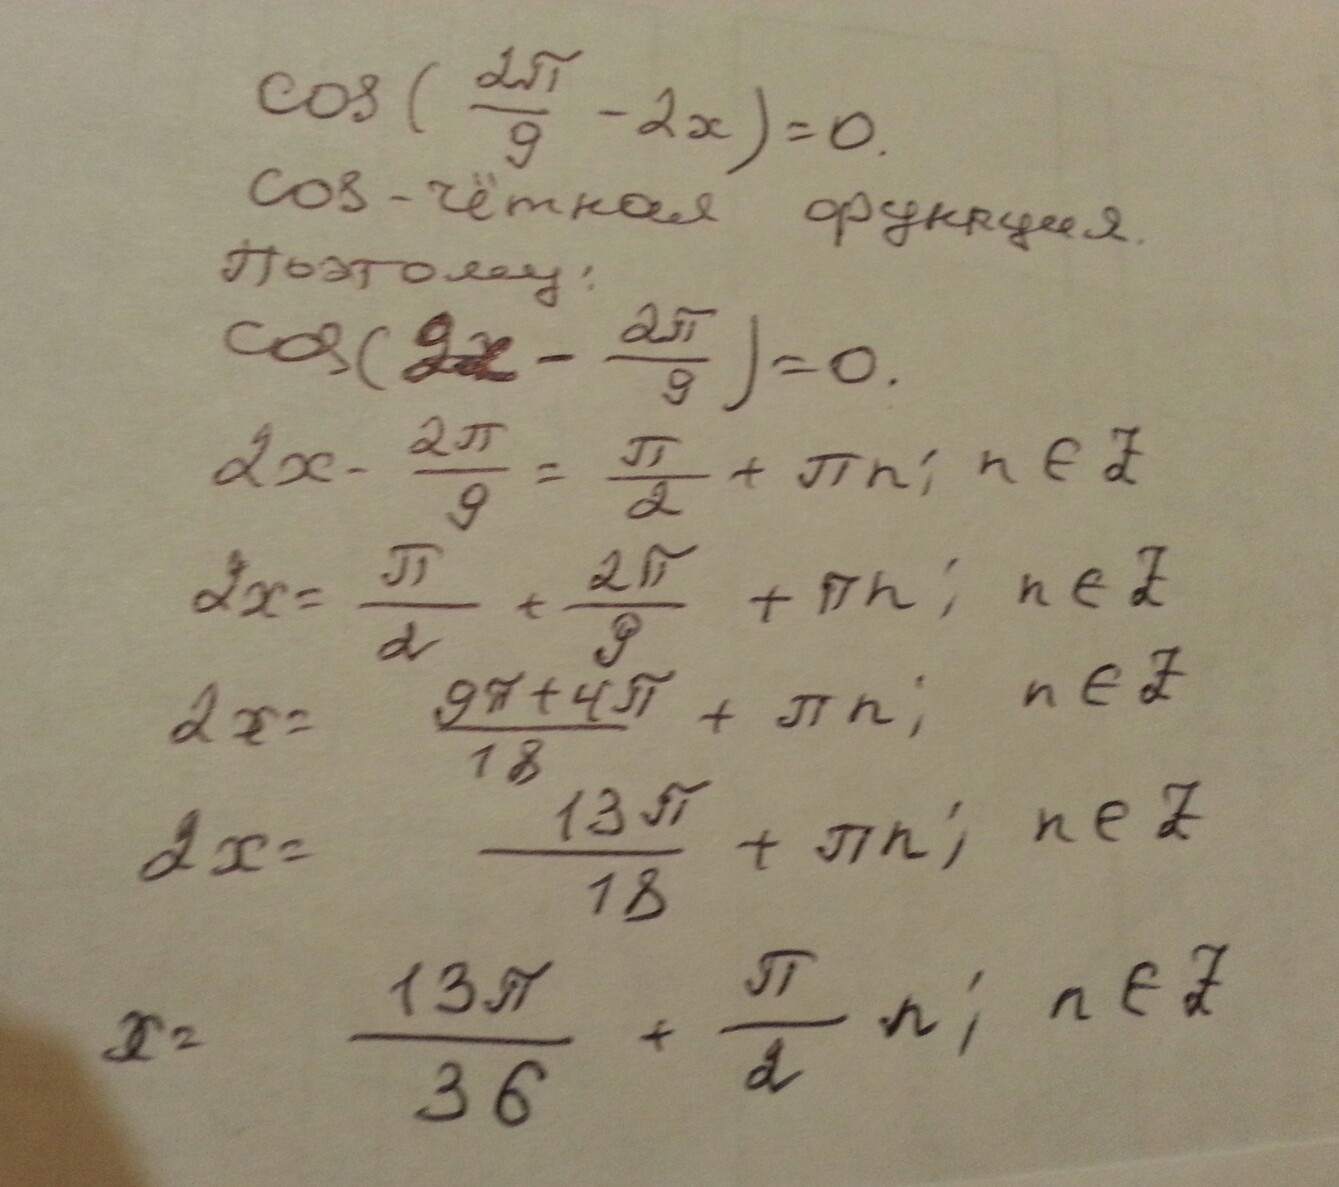 cos(2π/9 - 2x) = 0.
cos - чётная функция.
Поэтому:
cos(2x - 2π/9) = 0.
2x - 2π/9 = π/2 + πn; n ∈ Z
2x = π/2 + 2π/9 + πn; n ∈ Z
2x = (9π + 4π)/18 + πn; n ∈ Z
2x = 13π/18 + πn; n ∈ Z
x = 13π/36 + π/2 n; n ∈ Z